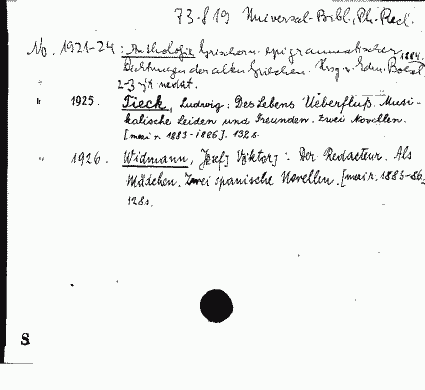 73.819 Universal-Bibl., Ph. Recl.
No. 1921-24: Anthologie griechischer epigrammatischer
Dichtungen der alten Griechen. Hrsg v. Edm. Boesel 1884.
2-3
" 1925. Tieck, Ludwig: Des Lebens Ueberfluß. Musi-
kalische Leiden und Freunden. Zwei Novellen.
[1883-1886]. 132s.
" 1926. Widmann, Josef Viktor: Der Redacteur. Als
Mädchen. Zwei spanische Novellen. [1883-86]
128s.
S